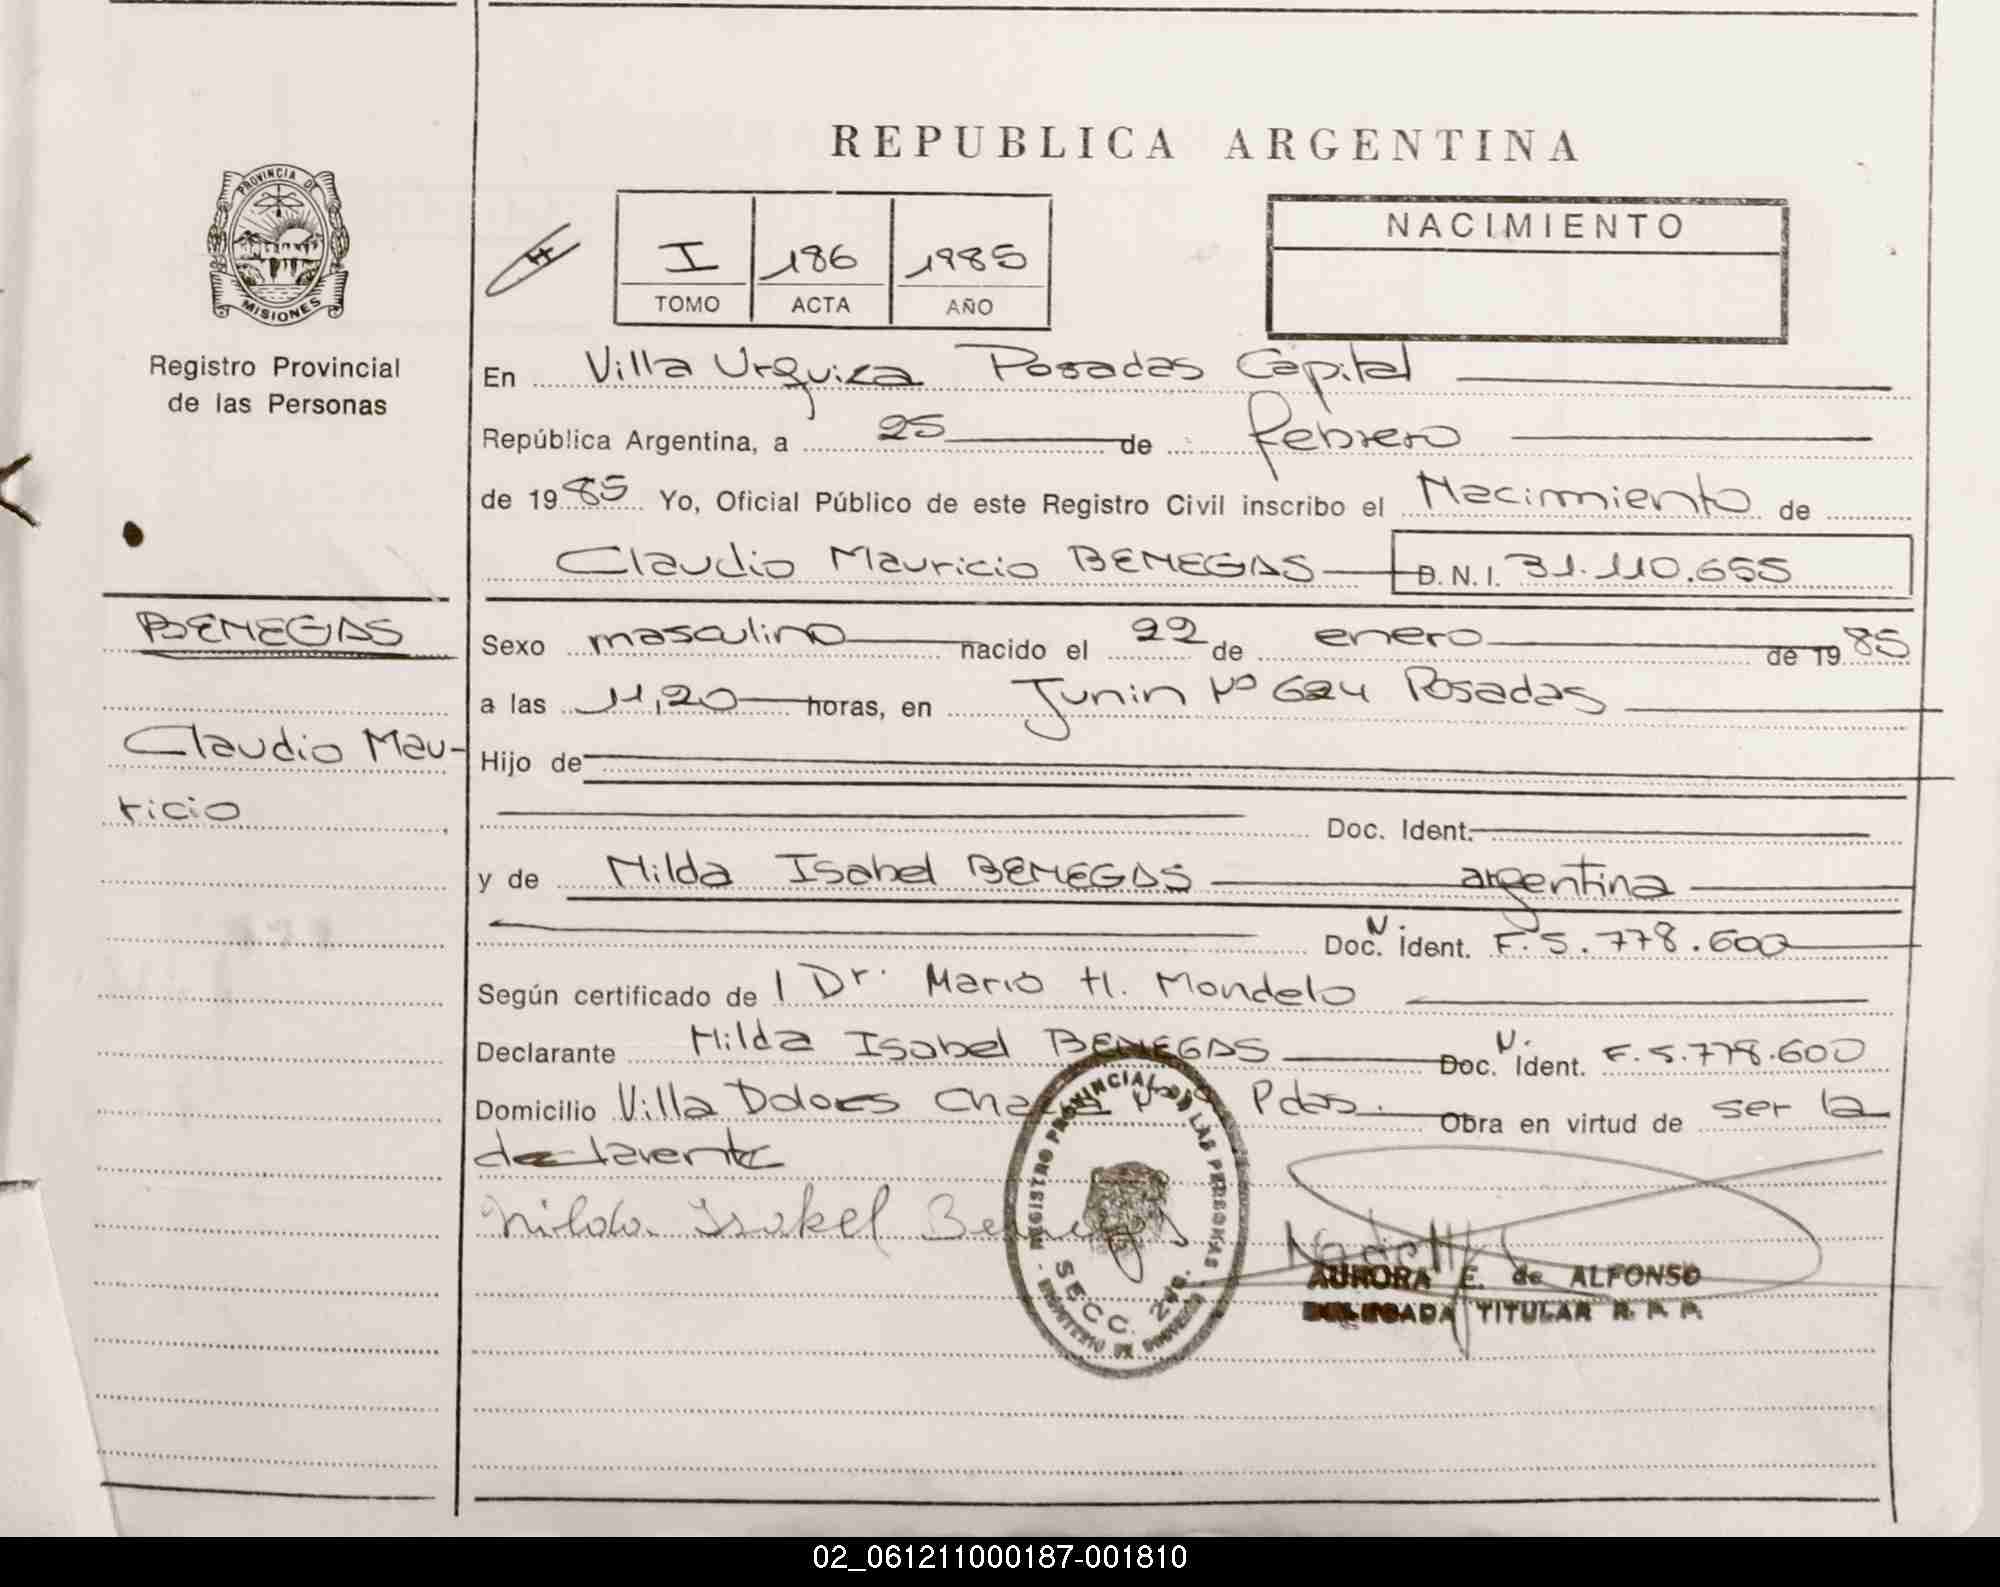 REPUBLICA ARGENTINA
PROVINCIA DE
MISIONES
Registro Provincial
de las Personas
I 186 1985
TOMO ACTA AÑO
NACIMIENTO
En Villa Urquiza Posadas Capital
República Argentina, a 25 de febrero
de 1985 Yo, Oficial Público de este Registro Civil inscribo el Nacimiento de
Claudio Mauricio BENEGAS D.N.I. 31.110.655
BENEGAS
Claudio Mau-
ricio
Sexo masculino nacido el 22 de enero de 1985
a las 11,20 horas, en Junin Nº 624 Posadas
Hijo de
Doc. Ident.
y de Nilda Isabel BENEGAS argentina
Doc. N. Ident. F. 5.778.600
Según certificado de l Dr. Mario H. Mondelo
Declarante Nilda Isabel BENEGAS Doc. N. Ident. F. 5.778.600
Domicilio Villa Dolores Pdas. Obra en virtud de ser la
declarente
Nilda Isabel Benegas
REGISTRO PROVINCIAL DE LAS PERSONAS
SECC. 2da.
MINISTERIO DE GOBIERNO
AURORA E. de ALFONSO
DELEGADA TITULAR R. P. P.
02_061211000187-001810